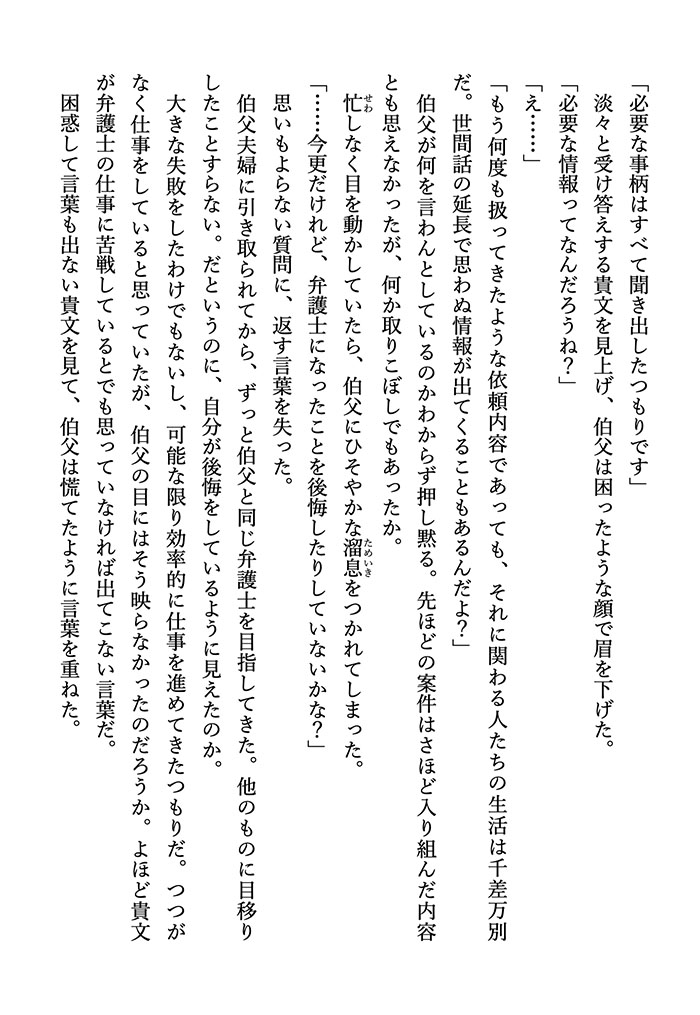 「必要な事柄はすべて聞き出したつもりです」
淡々と受け答えする貴文を見上げ、伯父は困ったような顔で眉を下げた。
「必要な情報ってなんだろうね？」
「え……」
「もう何度も扱ってきたような依頼内容であっても、それに関わる人たちの生活は千差万別
だ。世間話の延長で思わぬ情報が出てくることもあるんだよ？」
伯父が何を言わんとしているのかわからず押し黙る。先ほどの案件はさほど入り組んだ内容
とも思えなかったが、何か取りこぼしでもあったか。
忙しなく目を動かしていたら、伯父にひそやかな溜息をつかれてしまった。
「……今更だけれど、弁護士になったことを後悔したりしていないかな？」
思いもよらない質問に、返す言葉を失った。
伯父夫婦に引き取られてから、ずっと伯父と同じ弁護士を目指してきた。他のものに目移り
したことすらない。だというのに、自分が後悔をしているように見えたのか。
大きな失敗をしたわけでもないし、可能な限り効率的に仕事を進めてきたつもりだ。つつが
なく仕事をしていると思っていたが、伯父の目にはそう映らなかったのだろうか。よほど貴文
が弁護士の仕事に苦戦しているとでも思っていなければ出てこない言葉だ。
困惑して言葉も出ない貴文を見て、伯父は慌てたように言葉を重ねた。